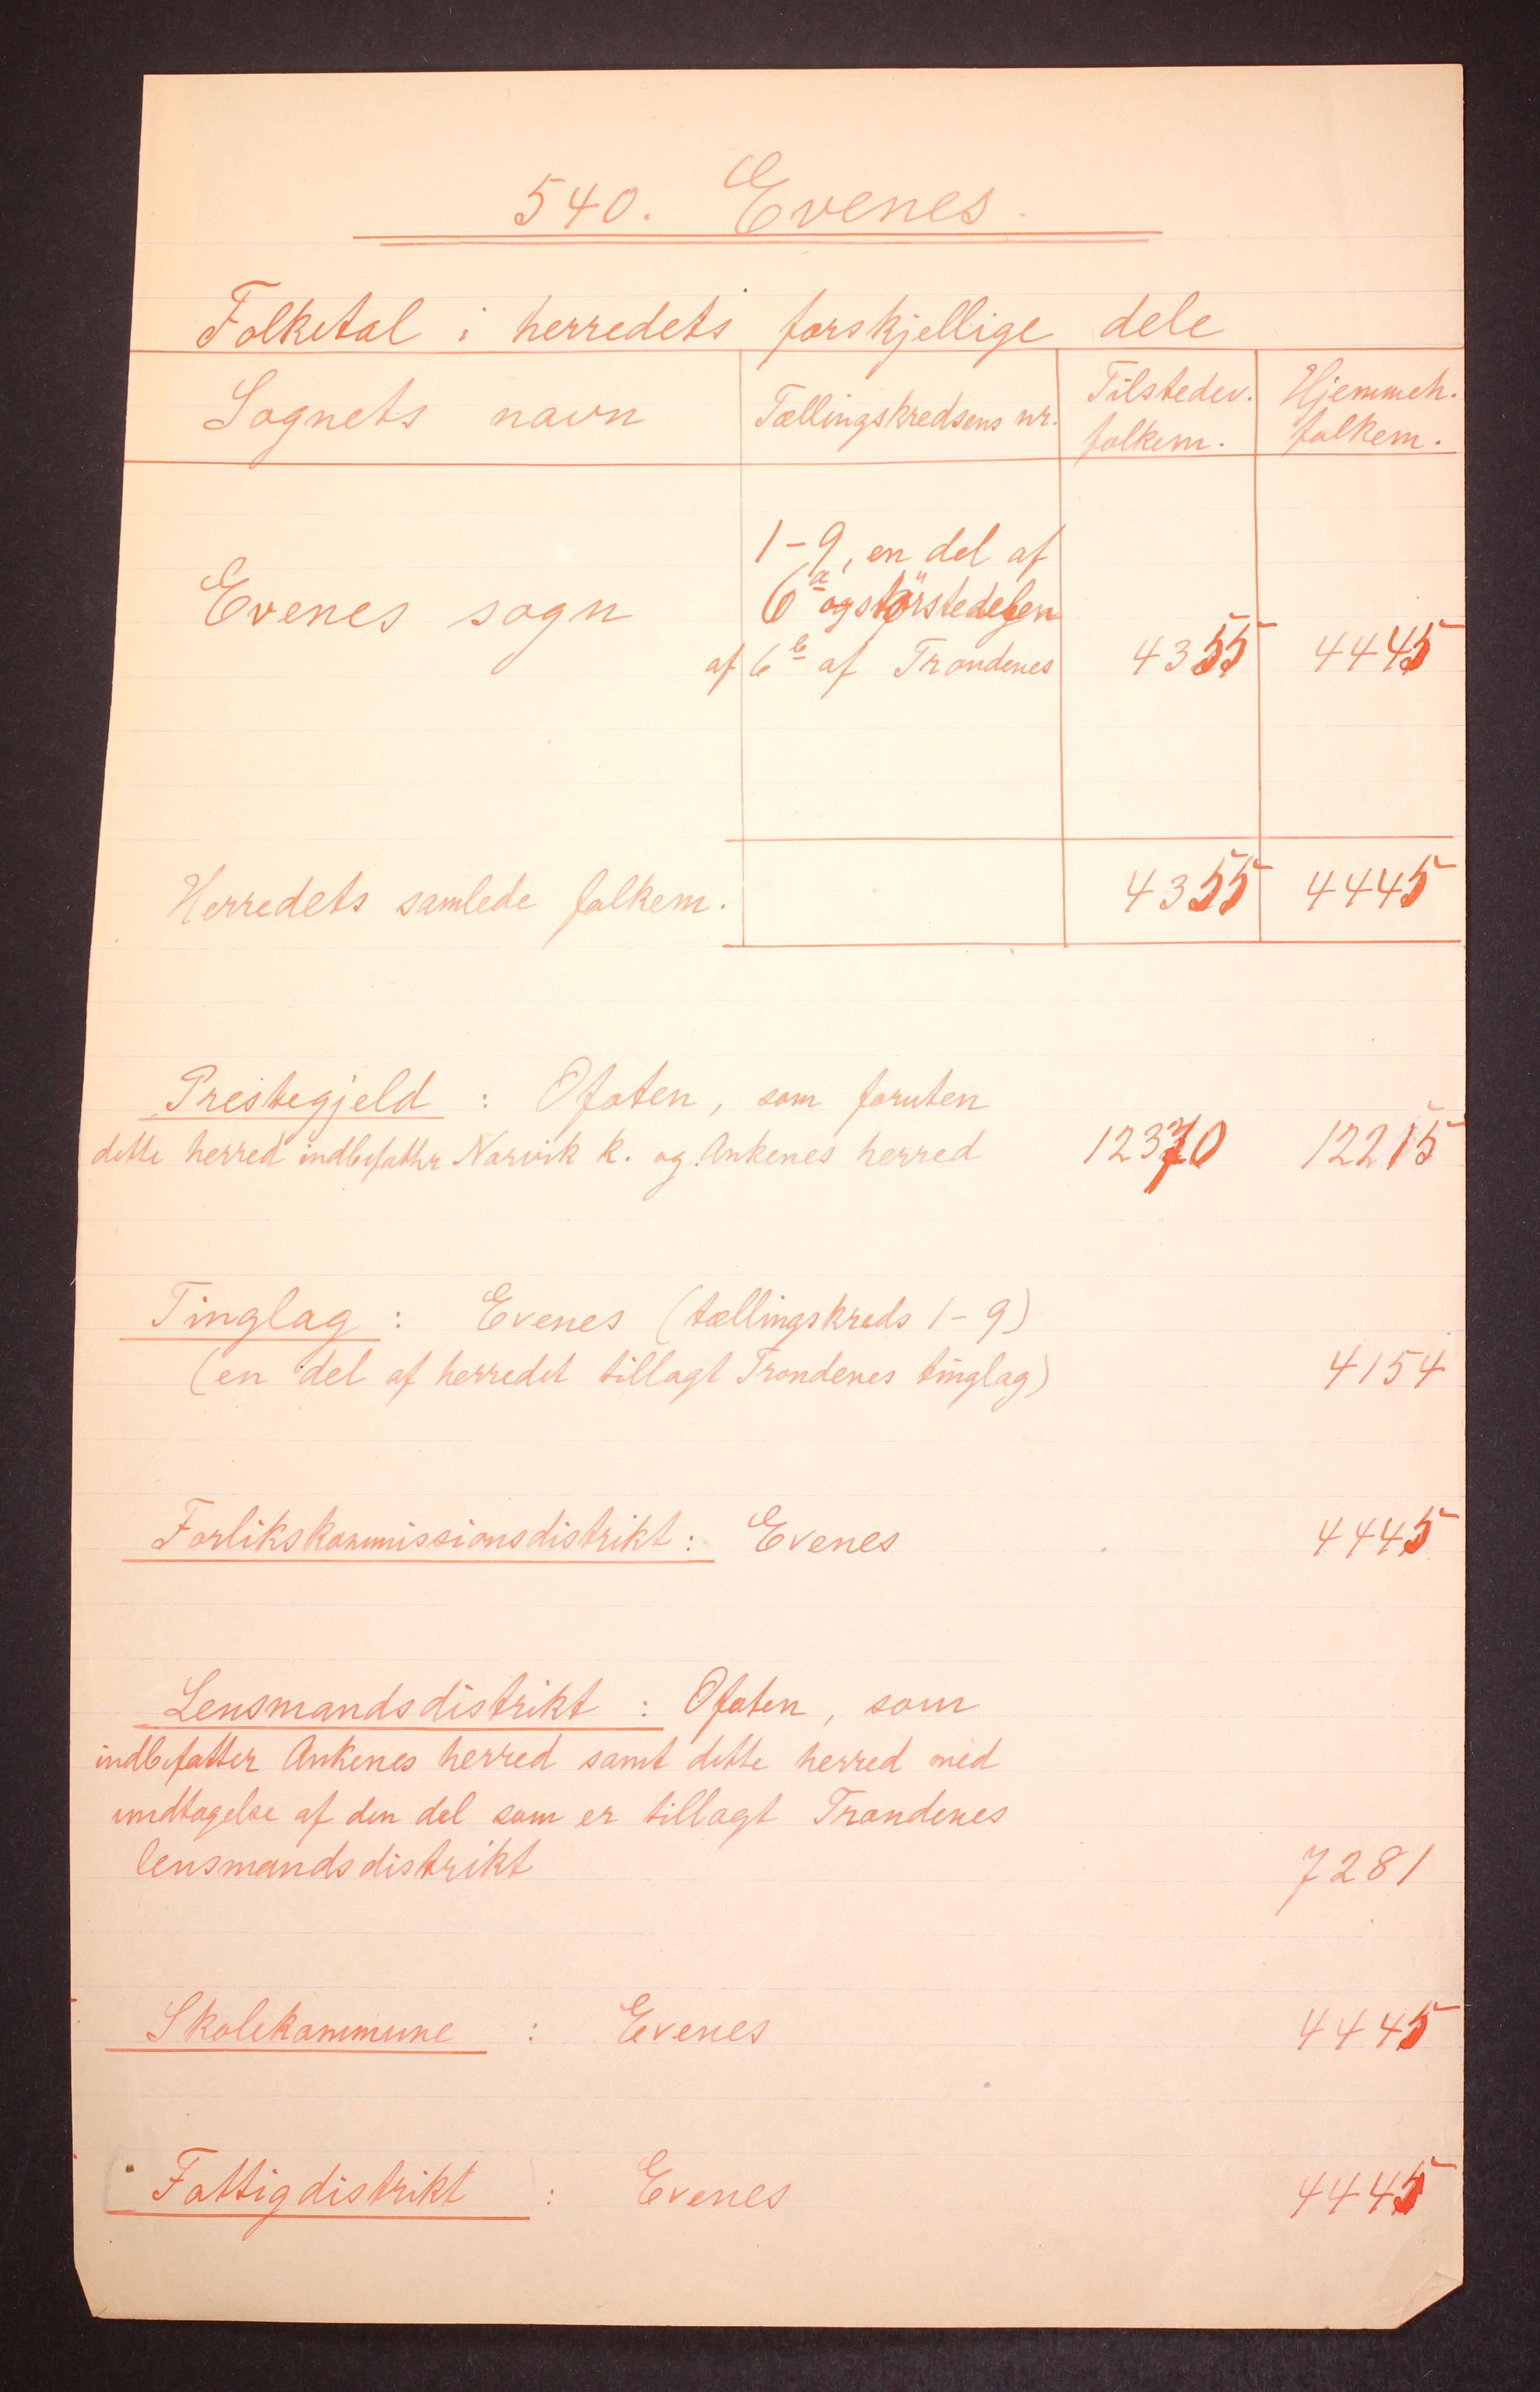 540. Evenes.
Folketal i herredets forskjellige dele
Sognets navn Tællingskredsens nr. Tilstedev. folkem. Hjemmeh. folkem.
1-9, en del af
6a og störstedelen
Evenes sogn af 6b af Trondenes 4355 4445
Herredets samlede folkem. 4355 4445
Prestegjeld : Ofoten, som foruten
dette herred indbefatter Narvik k. og Ankenes herred 12370 12215
Tinglag : Evenes (tællingskreds 1-9)
(en del af herredet tillagt Trondenes tinglag) 4154
Forlikskommissionsdistrikt : Evenes 4445
Lensmandsdistrikt : Ofoten, som
indbefatter Ankenes herred samt dette herred med
undtagelse af den del som er tillagt Trondenes
lensmandsdistrikt 7281
Skolekommune : Evenes 4445
Fattigdistrikt : Evenes 4445